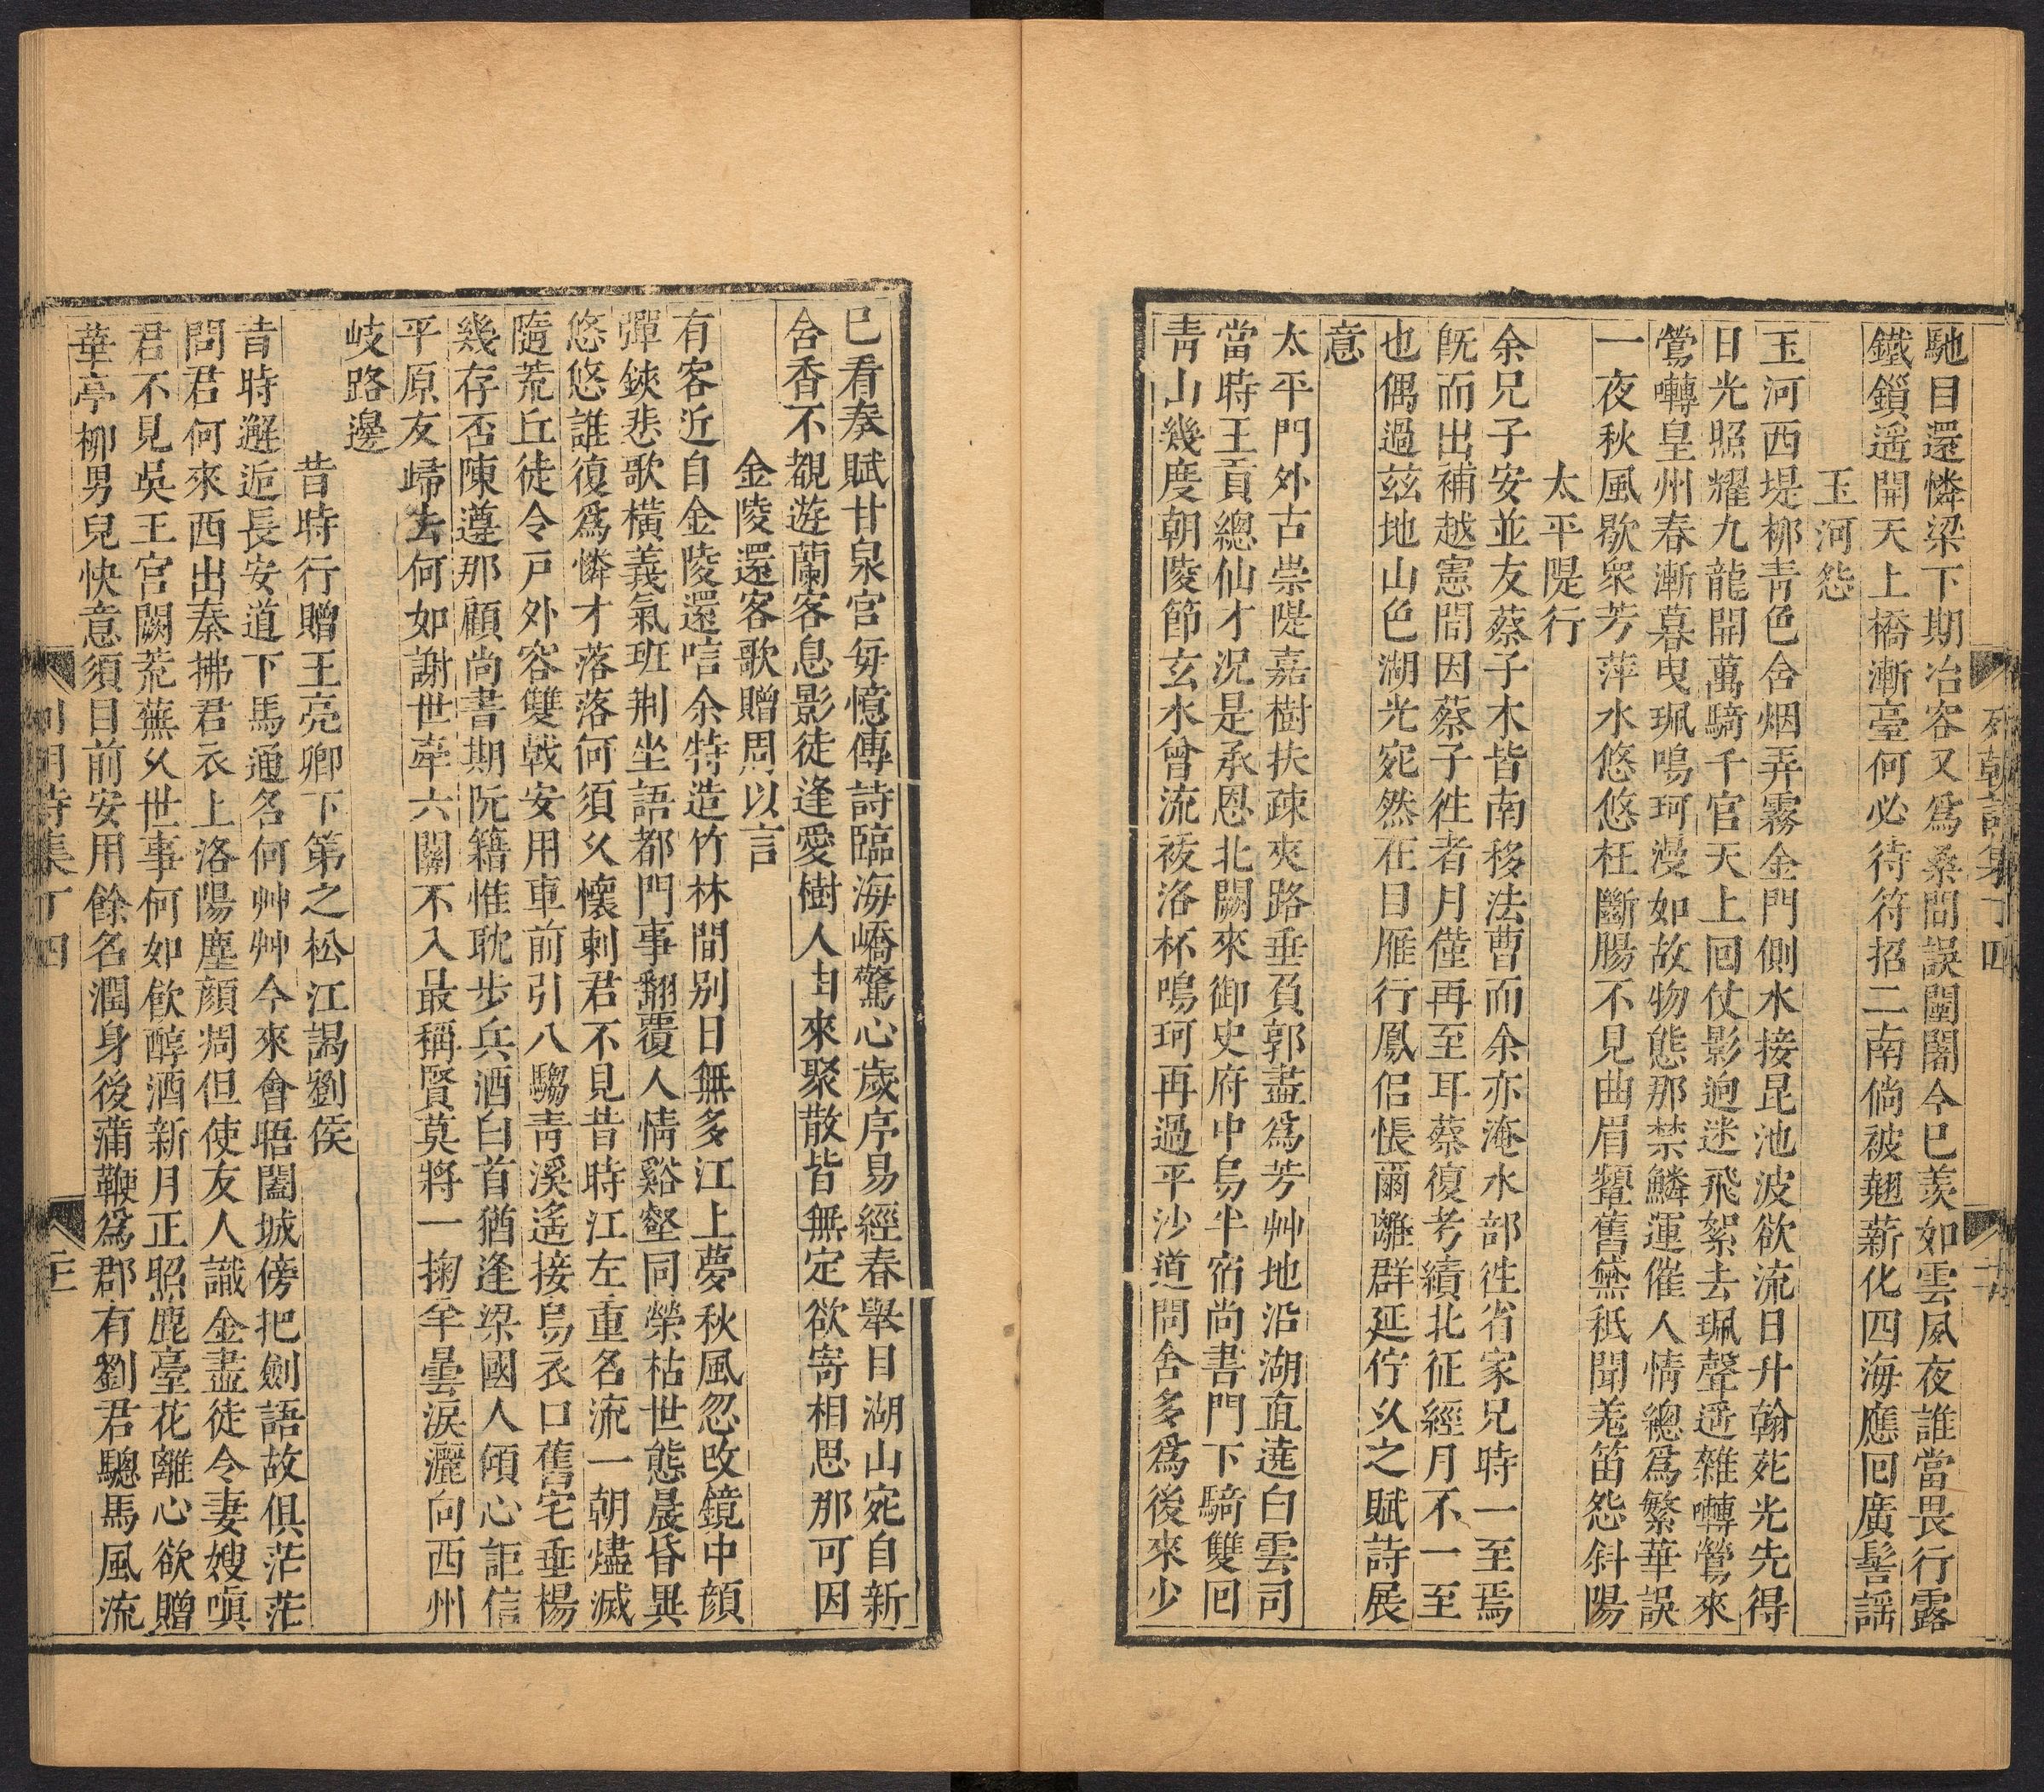 列朝詩集丁四
馳目還憐梁下期冶客又爲桑間誤闉闍今已羨如雲夙夜誰當畏行露
鐵鎖遥開天上橋漸臺何必待符招二南倘被翹薪化四海應回廣髻謡
玉河怨
玉河西堤柳靑色含烟弄霧金門側水接昆池波欲流日升翰苑光先得
日光照耀九龍開萬騎千官天上回仗影逈迷飛絮去珮聲遥雜囀鶯來
鶯囀皇州春漸暮曳珮鳴珂漫如故物態那禁鱗運催人情總爲繁華誤
一夜秋風歇衆芳萍水悠悠枉斷腸不見曲眉顰舊黛祇聞羌笛怨斜陽
太平隄行
余兄子安並友蔡子木皆南移法曹而余亦淹水部徃省家兄時一至焉
旣而出補越憲間因蔡子徃者月僅再至耳蔡復考績北征經月不一至
也偶過茲地山色湖光宛然在目雁行鳳侣悵爾離群延佇久之賦詩展
意
太平門外古崇隄嘉樹扶疎夾路垂負郭盡爲芳艸地沿湖直遶白雲司
當時王貢總仙才況是承恩北闕來御史府中烏半宿尚書門下騎雙回
靑山幾度朝陵節玄水曾流祓洛杯鳴珂再過平沙道問舍多爲後來少
已看奏賦甘泉宮每憶傳詩臨海嶠驚心歲序易經春舉目湖山宛自新
含香不覩遊蘭客息影徒逢愛樹人由來聚散皆無定欲寄相思那可因
金陵還客歌贈周以言
有客近自金陵還唁余特造竹林間别日無多江上夢秋風忽改鏡中顔
彈鋏悲歌橫義氣班荆坐語都門事翻覆人情谿壑同榮枯世態晨昏異
悠悠誰復爲憐才落落何須久懷刺君不見昔時江左重名流一朝燼滅
隨荒丘徒令戸外容雙戟安用車前引八騶靑溪遙接烏衣口舊宅垂楊
幾存否陳遵那顧尚書期阮籍惟耽步兵酒白首猶逢梁國人傾心詎信
平原友歸去何如謝世牽六關不入最稱賢莫將一掬羊曇淚灑向西州
岐路邊
昔時行贈王亮卿下第之松江謁劉侯
昔時邂逅長安道下馬通名何艸艸今來會晤闔城傍把劍語故俱茫茫
問君何來西出秦拂君衣上洛陽塵顔凋但使友人識金盡徒令妻嫂嗔
君不見吳王宮闕荒蕪久世事何如飮醇酒新月正照鹿臺花離心欲贈
華亭柳男兒快意須目前安用餘名潤身後蒲鞭爲郡有劉君驄馬風流
列朝詩集丁四